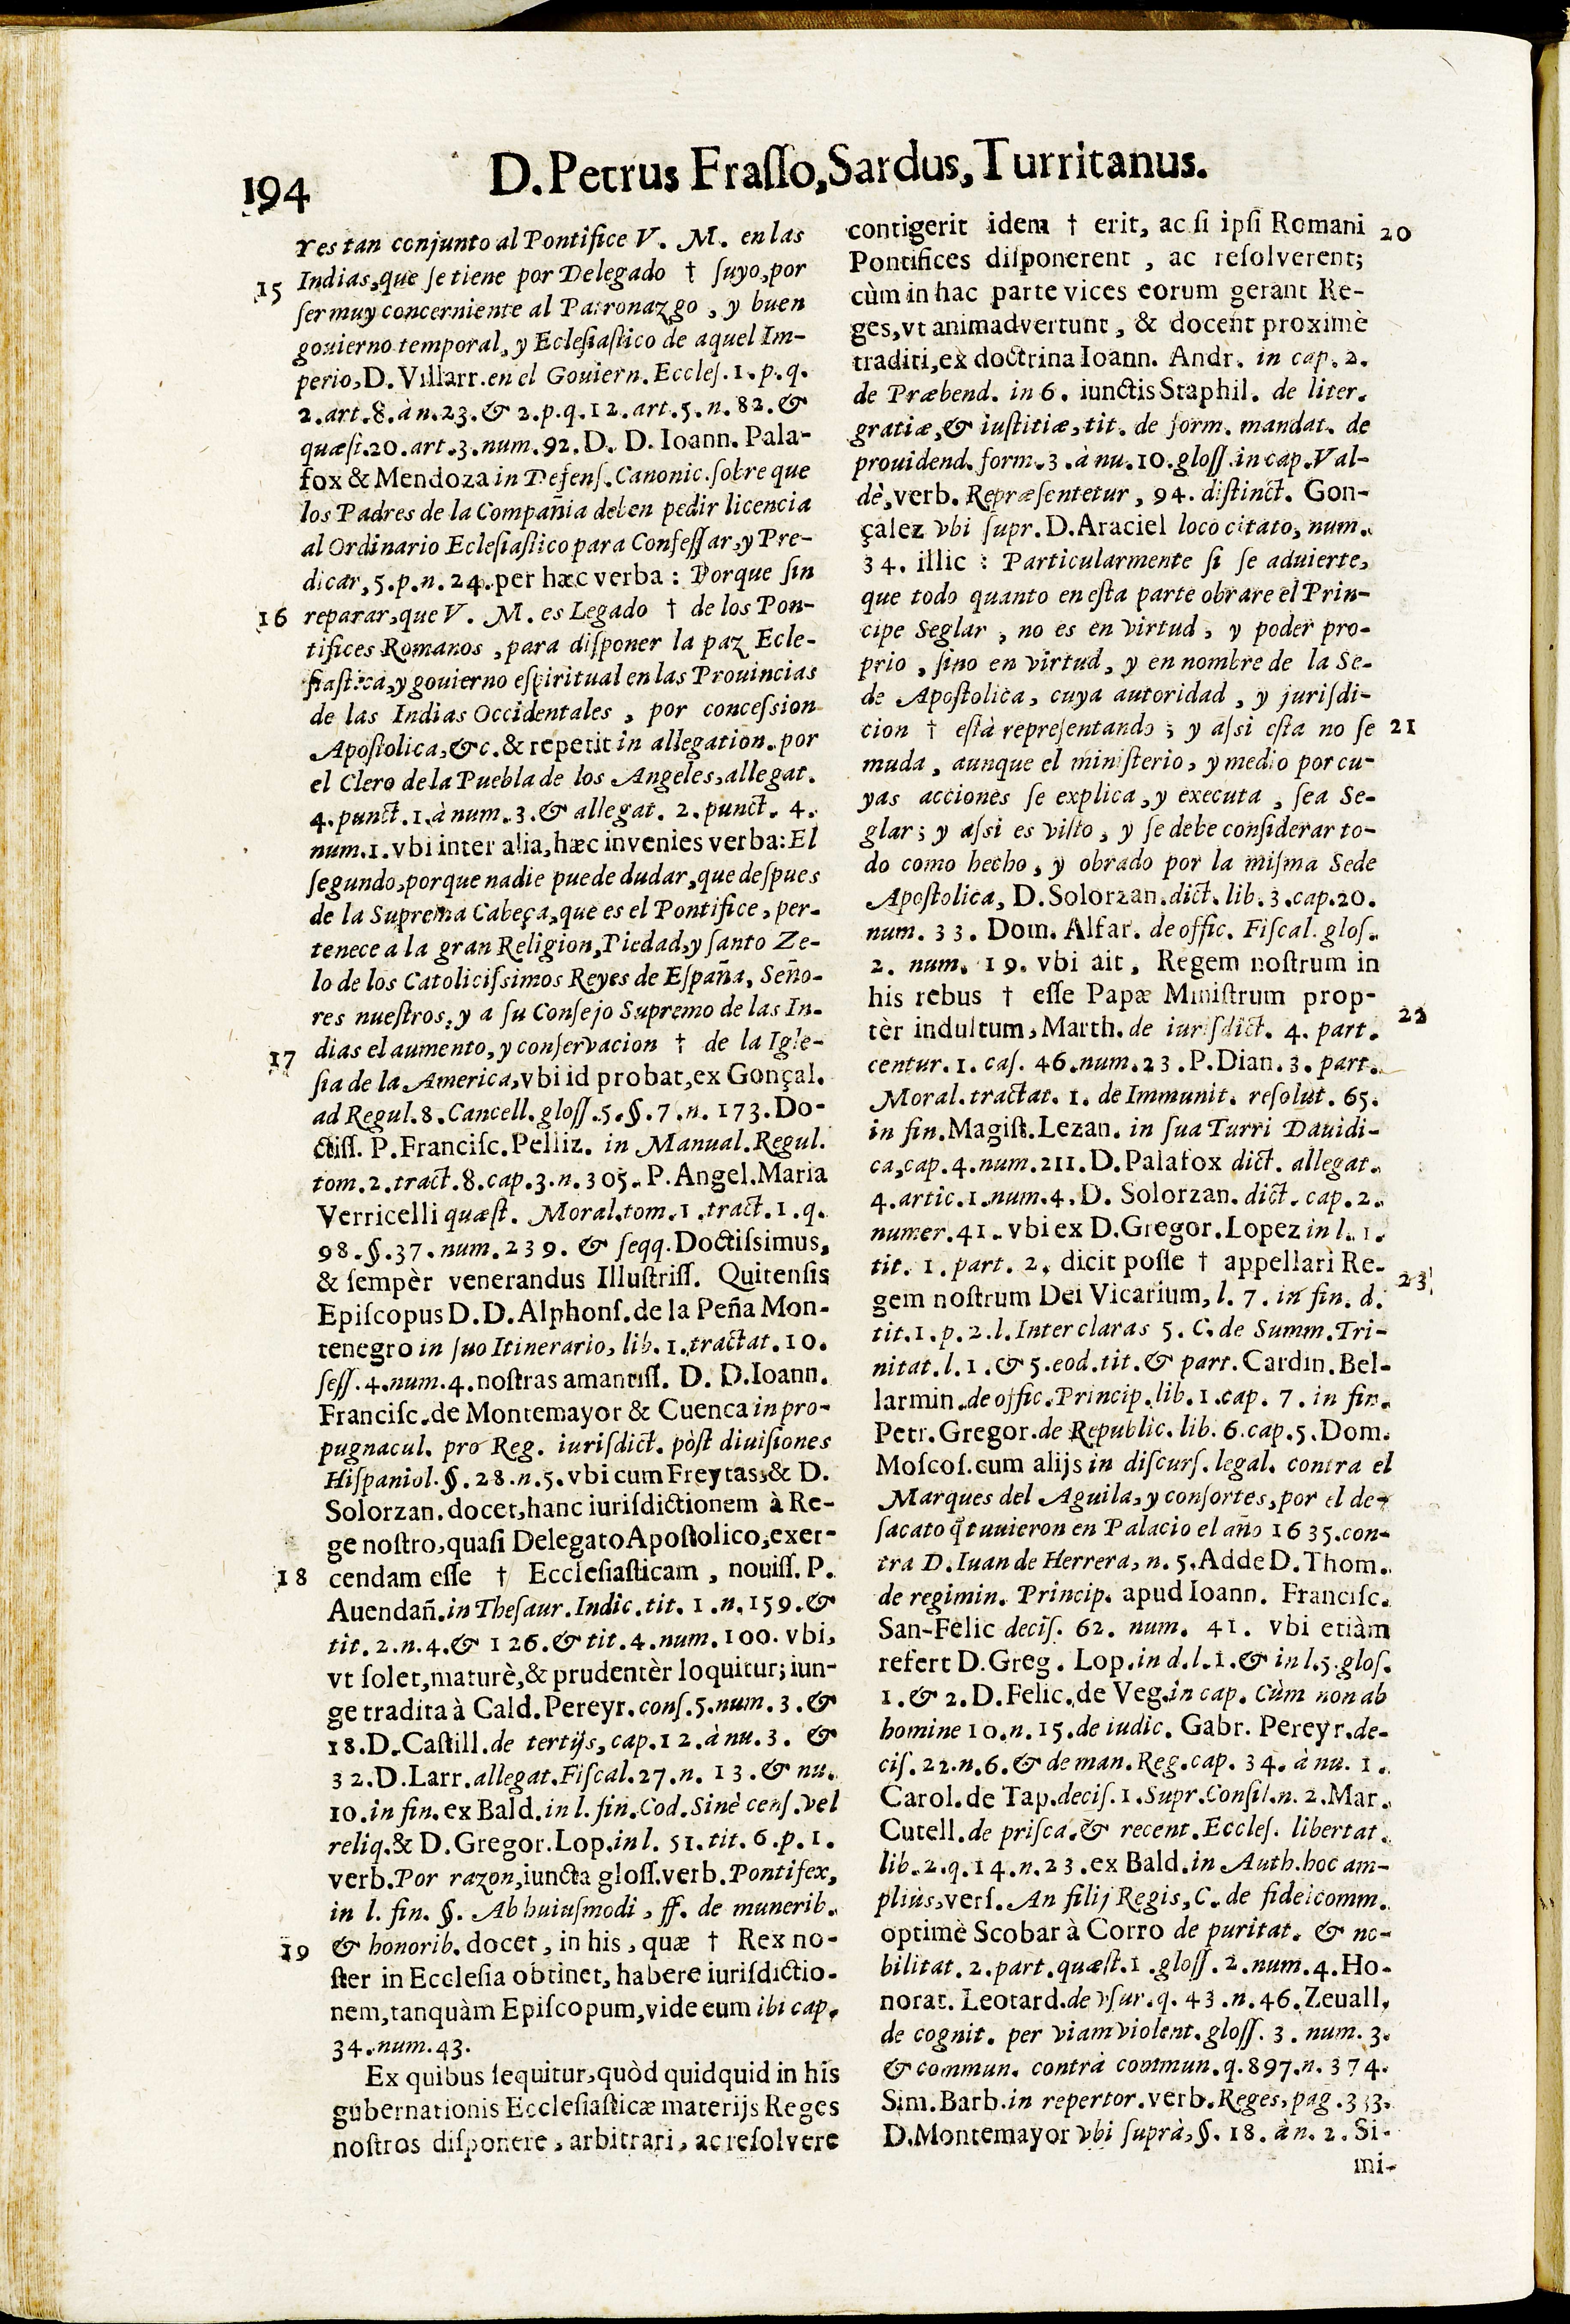 194
D. Petrus Frasso, Sardus, Turritanus.
Y es tan conjunto al Pontifice V. M. en las
15 Indias, que se tiene por Delegado † suyo, por
ser muy concerniente al Patronazgo, y buen
gouierno temporal, y Eclesiastico de aquel Im-
perio, D. Villarr. en el Gouiern. Eccles. 1. p. q.
2. art. 8. à n. 23. & 2. p. q. 12. art. 5. n. 82. &
quæst. 20. art. 3. num. 92. D. D. Ioann. Pala-
fox & Mendoza in Defens. Canonic. sobre que
los Padres de la Compañia deben pedir licencia
al Ordinario Eclesiastico para Confessar, y Pre-
dicar, 5. p. n. 24. per hæc verba: Porque sin
16 reparar, que V. M. es Legado † de los Pon-
tifices Romanos, para disponer la paz Ecle-
siastica, y gouierno espiritual en las Prouincias
de las Indias Occidentales, por concession
Apostolica, &c. & repetit in allegation. por
el Clero de la Puebla de los Angeles, allegat.
4. punct. 1. à num. 3. & allegat. 2. punct. 4.
num. 1. vbi inter alia, hæc invenies verba: El
segundo, porque nadie puede dudar, que despues
de la Suprema Cabeça, que es el Pontifice, per-
tenece a la gran Religion, Piedad, y santo Ze-
lo de los Catolicissimos Reyes de España, Seño-
res nuestros, y a su Consejo Supremo de las In-
17 dias el aumento, y conservacion † de la Igle-
sia de la America, vbi id probat, ex Gonçal.
ad Regul. 8. Cancell. gloss. 5. §. 7. n. 173. Do-
ctiss. P. Francisc. Pelliz. in Manual. Regul.
tom. 2. tract. 8. cap. 3. n. 305. P. Angel. Maria
Verricelli quæst. Moral. tom. 1. tract. 1. q.
98. §. 37. num. 239. & seqq. Doctissimus,
& sempèr venerandus Illustriss. Quitensis
Episcopus D. D. Alphons. de la Peña Mon-
tenegro in suo Itinerario, lib. 1. tractat. 10.
sess. 4. num. 4. nostras amantiss. D. D. Ioann.
Francisc. de Montemayor & Cuenca in pro-
pugnacul. pro Reg. iurisdict. pòst diuisiones
Hispaniol. §. 28. n. 5. vbi cum Freytas, & D.
Solorzan. docet, hanc iurisdictionem à Re-
ge nostro, quasi Delegato Apostolico, exer-
18 cendam esse † Ecclesiasticam, nouiss. P.
Auendañ. in Thesaur. Indic. tit. 1. n. 159. &
tit. 2. n. 4. & 126. & tit. 4. num. 100. vbi,
vt solet, maturè, & prudentèr loquitur; iun-
ge tradita à Cald. Pereyr. cons. 5. num. 3. &
18. D. Castill. de tertijs, cap. 12. à nu. 3. &
32. D. Larr. allegat. Fiscal. 27. n. 13. & nu.
10. in fin. ex Bald. in l. fin. Cod. Sinè cens. vel
reliq. & D. Gregor. Lop. in l. 51. tit. 6. p. 1.
verb. Por razon, iuncta gloss. verb. Pontifex,
in l. fin. §. Ab huiusmodi, ff. de munerib.
19 & honorib. docet, in his, quæ † Rex no-
ster in Ecclesia obtinet, habere iurisdictio-
nem, tanquàm Episcopum, vide eum ibi cap.
34. num. 43.
Ex quibus sequitur, quòd quidquid in his
gubernationis Ecclesiasticæ materijs Reges
nostros disponere, arbitrari, ac resolvere
contigerit idem † erit, ac si ipsi Romani 20
Pontifices disponerent, ac resolverent;
cùm in hac parte vices eorum gerant Re-
ges, vt animadvertunt, & docent proximè
traditi, ex doctrina Ioann. Andr. in cap. 2.
de Præbend. in 6. iunctis Staphil. de liter.
gratiæ, & iustitiæ, tit. de form. mandat. de
prouidend. form. 3. à nu. 10. gloss. in cap. Val-
dè, verb. Repræsentetur, 94. distinct. Gon-
çalez vbi supr. D. Araciel loco citato, num.
34. illic: Particularmente si se aduierte,
que todo quanto en esta parte obrare el Prin-
cipe Seglar, no es en virtud, y poder pro-
prio, sino en virtud, y en nombre de la Se-
de Apostolica, cuya autoridad, y jurisdi-
cion † està representando; y assi esta no se 21
muda, aunque el ministerio, y medio por cu-
yas acciones se explica, y executa, sea Se-
glar; y assi es visto, y se debe considerar to-
do como hecho, y obrado por la misma Sede
Apostolica, D. Solorzan. dict. lib. 3. cap. 20.
num. 33. Dom. Alfar. de offic. Fiscal. glos.
2. num. 19. vbi ait, Regem nostrum in
his rebus † esse Papæ Ministrum prop- 22
tèr indultum, Marth. de iurisdict. 4. part.
centur. 1. cas. 46. num. 23. P. Dian. 3. part.
Moral. tractat. 1. de Immunit. resolut. 65.
in fin. Magist. Lezan. in sua Turri Dauidi-
ca, cap. 4. num. 211. D. Palafox dict. allegat.
4. artic. 1. num. 4. D. Solorzan. dict. cap. 2.
numer. 41. vbi ex D. Gregor. Lopez in l. 1.
tit. 1. part. 2. dicit posse † appellari Re- 23
gem nostrum Dei Vicarium, l. 7. in fin. d.
tit. 1. p. 2. l. Inter claras 5. C. de Summ. Tri-
nitat. l. 1. & 5. eod. tit. & part. Cardin. Bel-
larmin. de offic. Princip. lib. 1. cap. 7. in fin.
Petr. Gregor. de Republic. lib. 6. cap. 5. Dom.
Moscos. cum alijs in discurs. legal. contra el
Marques del Aguila, y consortes, por el de-
sacato q̃ tuuieron en Palacio el año 1635. con-
tra D. Iuan de Herrera, n. 5. Adde D. Thom.
de regimin. Princip. apud Ioann. Francisc.
San-Felic decis. 62. num. 41. vbi etiàm
refert D. Greg. Lop. in d. l. 1. & in l. 5. glos.
1. & 2. D. Felic. de Veg. in cap. Cùm non ab
homine 10. n. 15. de iudic. Gabr. Pereyr. de-
cis. 22. n. 6. & de man. Reg. cap. 34. à nu. 1.
Carol. de Tap. decis. 1. Supr. Consil. n. 2. Mar.
Cutell. de prisca. & recent. Eccles. libertat.
lib. 2. q. 14. n. 23. ex Bald. in Auth. hoc am-
pliùs, vers. An filij Regis, C. de fideicomm.
optimè Scobar à Corro de puritat. & no-
bilitat. 2. part. quæst. 1. gloss. 2. num. 4. Ho-
norat. Leotard. de vsur. q. 43. n. 46. Zeuall.
de cognit. per viam violent. gloss. 3. num. 3.
& commun. contrà commun. q. 897. n. 374.
Sim. Barb. in repertor. verb. Reges, pag. 333.
D. Montemayor vbi suprà, §. 18. à n. 2. Si-
mi-